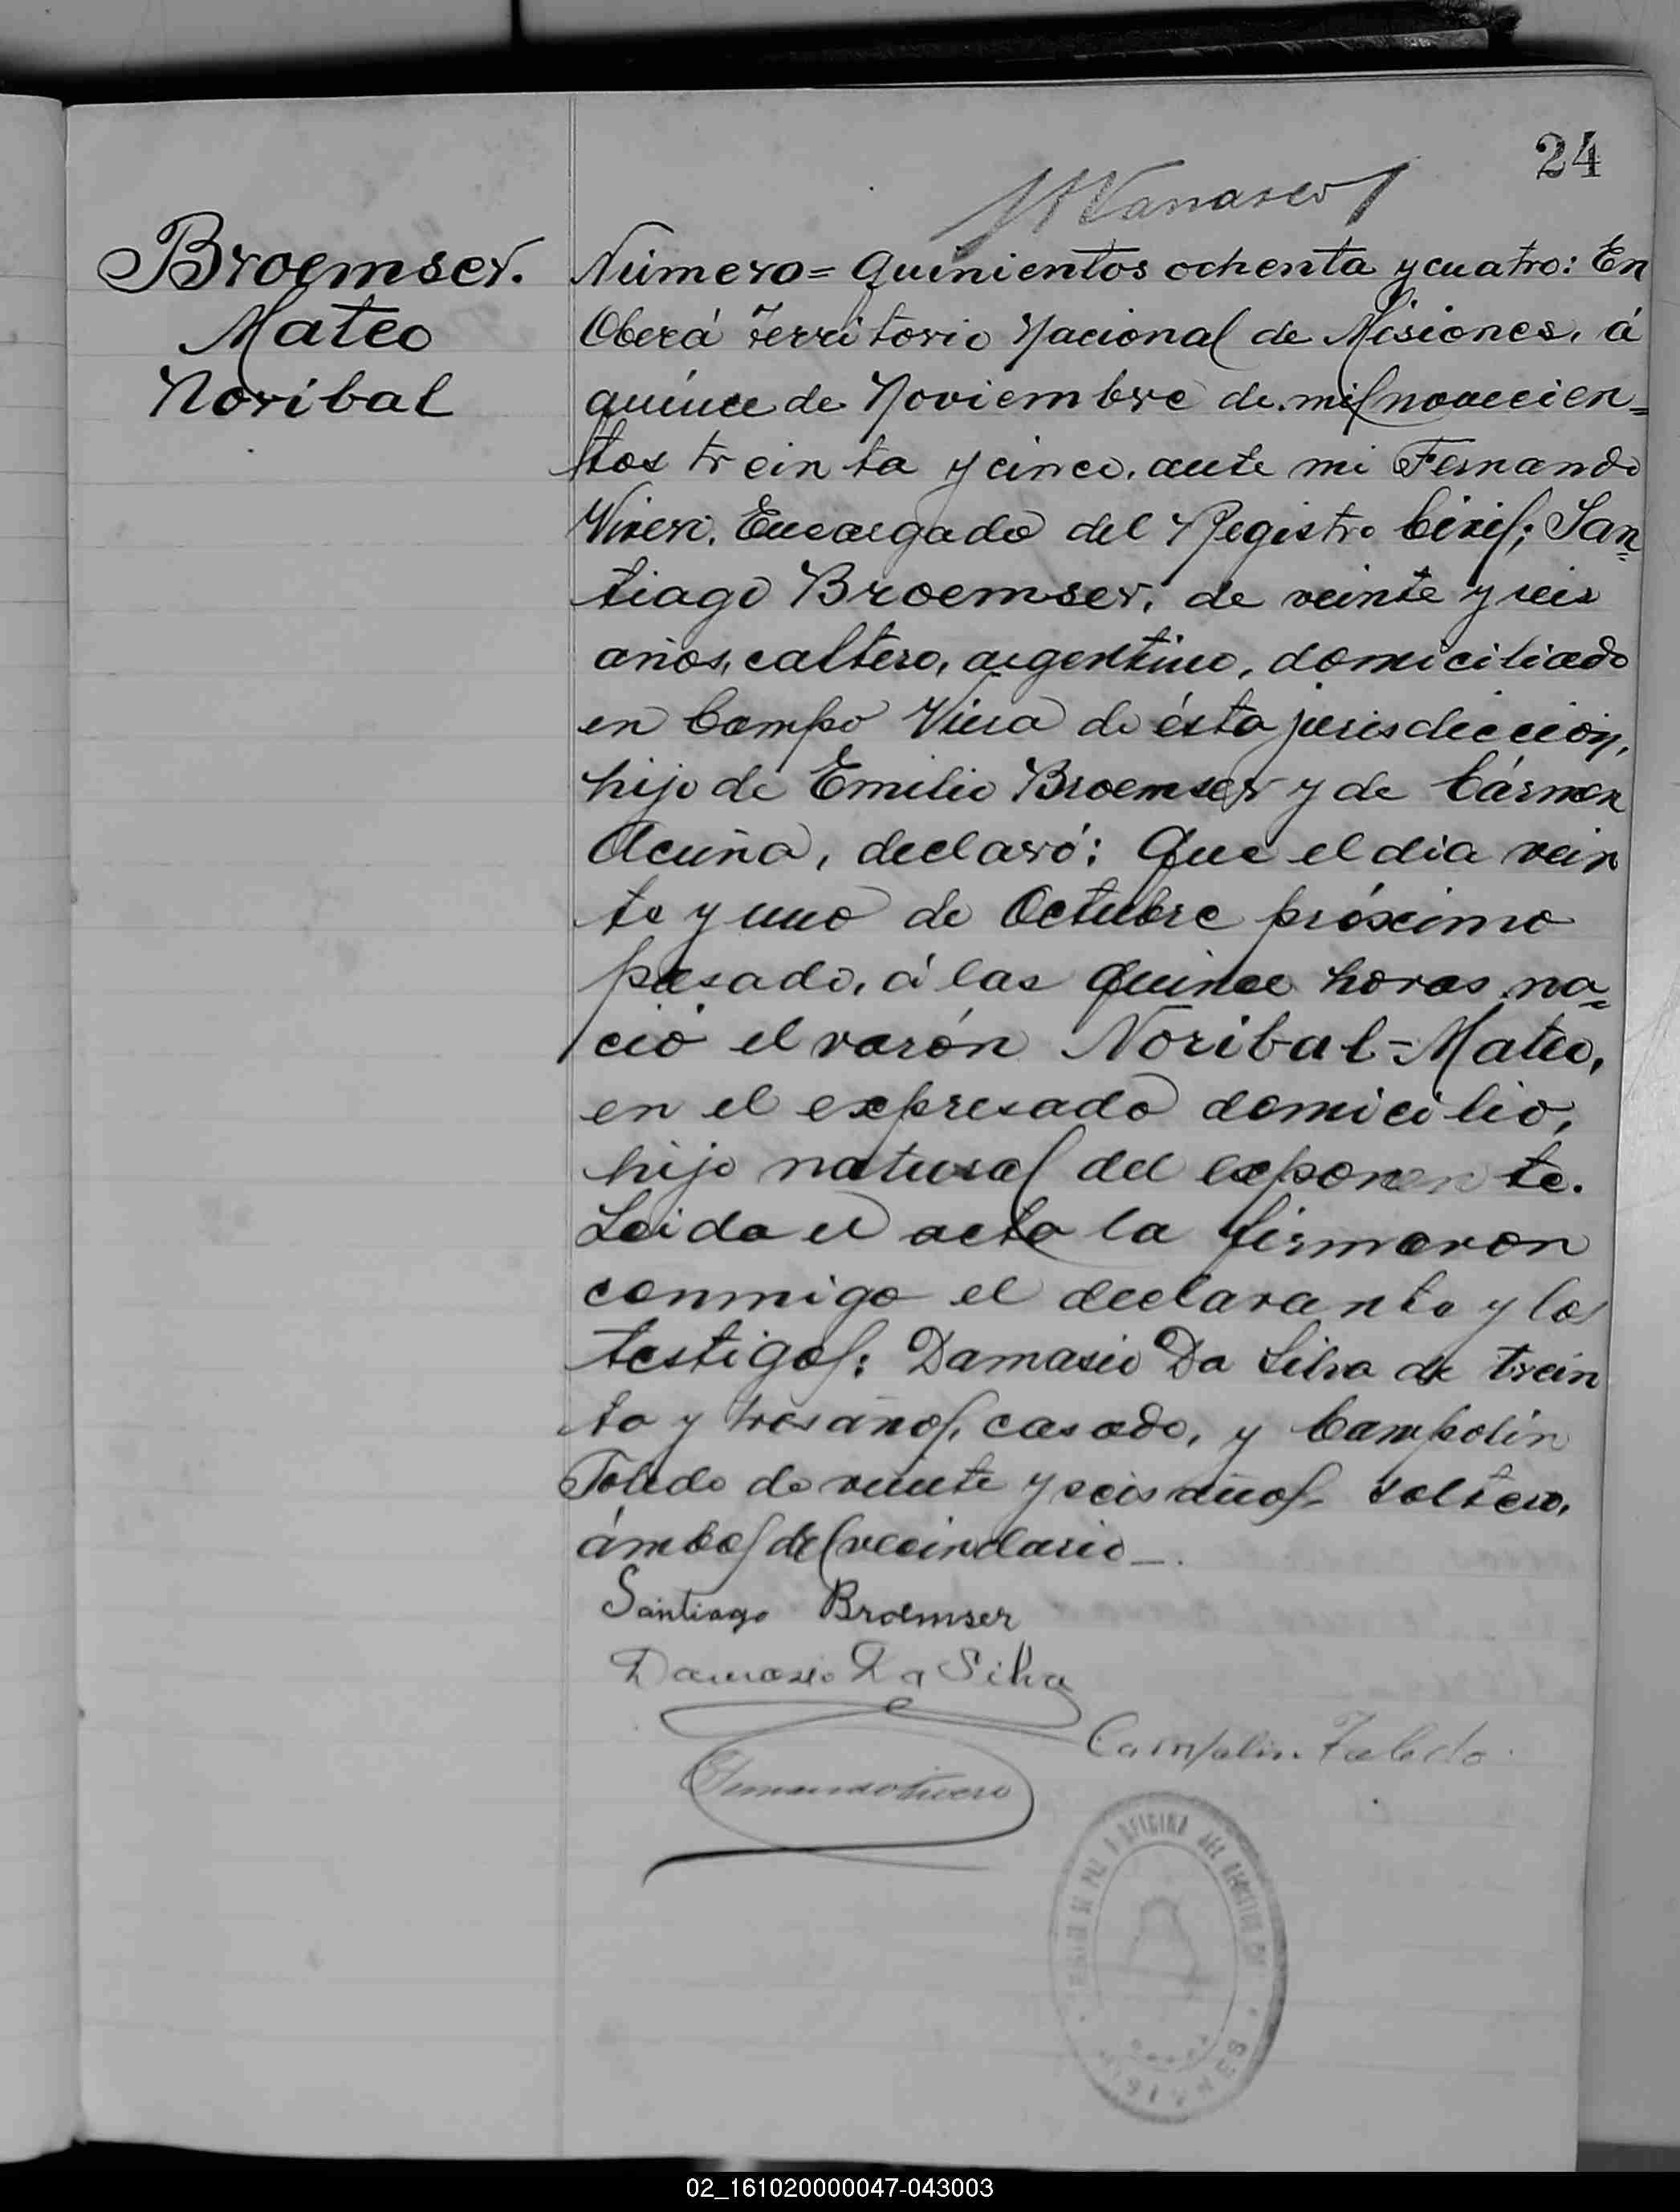 24
Broemser.
Mateo
Noribal
Número= Quinientos ochenta y cuatro: En
Oberá Territorio Nacional de Misiones, á
quince de Noviembre de mil novecien=
tos treinta y cinco, ante mi Fernando
Viveri, Encargado del Registro Civil; San=
tiago Broemser, de veinte y seis
años, soltero, argentino, domiciliado
en Campo Viera de ésta jurisdicción,
hijo de Emilio Broemser y de Cármen
Acuña, declaró: Que el dia vein
te y uno de Octubre próximo
pasado, á las quince horas na=
ció el varón Noribal-Mateo,
en el expresado domicilio,
hijo natural del exponente.
Leida el acta la firmaron
conmigo el declarante y los
testigos: Damasio Da Silva de trein
ta y tres años, casado, y Campolin
Toledo de veinte y seis años, soltero,
ámbos del vecindario_.
Santiago Broemser
Damasio Da Silva
Campolin Toledo
OFICINA DEL REGISTRO
MISIONES
02_161020000047-043003